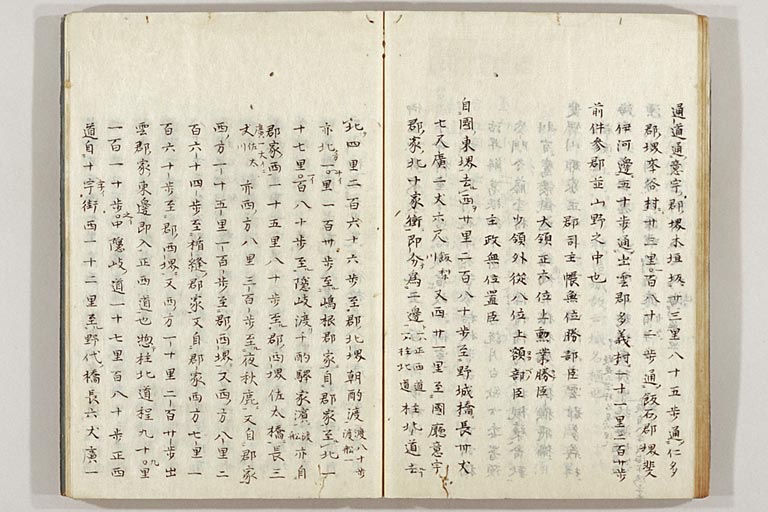 通道通意宇郡堺木垣坂廿三里八十五歩通仁多
郡堺辛谷村廿三里百八十二歩通飯石郡堺斐
伊河邊五十歩通出雲郡多義村一十一里二百廿歩
前件参郡並山野之中也
郡司主帳無位勝部臣
大領正六位上勲業勝臣
少領外從八位上額部臣
主政無位置臣
自國東堺去西廿里二百八十歩至野城橋長卅丈
七尺廣二丈六尺飯梨川又西廿一里至國廳意宇
郡家北十字街即分為二道一正西道一枉北道枉北道去
北四里二百六十六歩至郡北堺朝酌渡渡八十歩渡船一
亦北一十里一百卌歩至嶋根郡家自郡家至北一
十七里百八十歩至隱岐渡千酌驛家濱渡船亦自
郡家西一十五里八十歩至郡西堺佐太橋長三
丈廣一丈佐太川亦西方八里三百歩至夜秋鹿又自郡家
西方一十五里一百歩至郡西堺又西方八里二
百六十四歩至楯縫郡家又自郡家西方七里一
百六十歩至郡西堺又西方一十里二百廿歩出
雲郡家東邊即入正西道也惣枉北道程九十九里
一百一十歩之中隱岐道一十七里百八十歩正西
道自十字街西一十二里至野代橋長六丈廣一